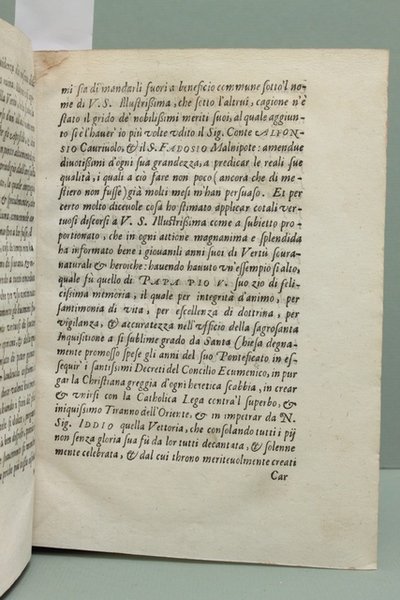 mi sia di mandarli fuori a beneficio commune sotto'l no
me di V. S. Illustrißima, che sotto l'altrui, cagione n'è
stato il grido de' nobilißimi meriti suoi, al quale aggiun
to si è l'hauer' io più volte vdito il Sig. Conte ALFON-
SIO Cauriuolo, & il S. FADOSIO Malnipote: amendue
diuotißimi d'ogni sua grandezza, a predicar le reali sue
qualità, i quali a ciò fare non poco (ancora che di me-
stiero non fusse) già molti mesi m'han persuaso. Et per
certo molto diceuole cosa hò stimato applicar cotali ver-
tuosi discorsi a V. S. Illustrißima come a subietto pro-
portionato, che in ogni attione magnanima e splendida
ha informato bene i giouanili anni suoi di Vertù soura-
naturali & heroiche: hauendo hauuto vn'essempio sì alto,
quale fù quello di PAPA PIO V. suo zio di feli-
cißima memoria, il quale per integrità d'animo, per
santimonia di vita, per escellenza di dottrina, per
vigilanza, & accuratezza nell'vfficio della sagrosanta
Inquisitione a sì sublime grado da Santa Chiesa degna-
mente promosso spese gli anni del suo Pontificato, in es-
sequir' i santißimi Decreti del Concilio Ecumenico, in pur
gar la Christiana greggia d'ogni heretica scabbia, in crear
& vnirsi con la Catholica Lega contra'l superbo, &
iniquissimo Tiranno dell'Oriente, & in impetrar da N.
Sig. IDDIO quella Vettoria, che consolando tutti i pij
non senza gloria sua fù da lor tutti decantata, & solenne
mente celebrata, & dal cui throno meriteuolmente creati
Car